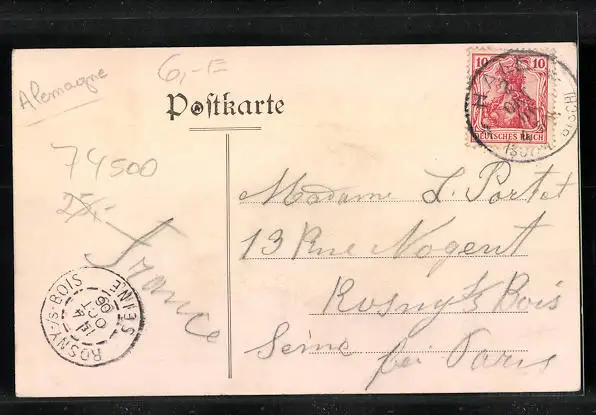 Alemagne
6,-E
Postkarte
10 10
DEUTSCHES REICH
BISCH
74500
25,-
France
Madame L. Portet
13 Rue Nogent
Rosny s/s Bois
Seine bei Paris
ROSNY-S-BOIS
SEINE
OCT
09